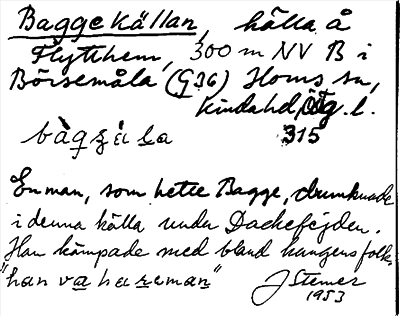 Baggekällan, källa å
Flytthem, 300 m NV B i
Börsemåla (G36) Horns sn,
Kinda hd, Ög. l.
315
En man, som hette Bagge, drunknade
i denna källa under Dackefejden.
Han kämpade med bland kungens folk.
"han va hareman"
J Stemer
1953